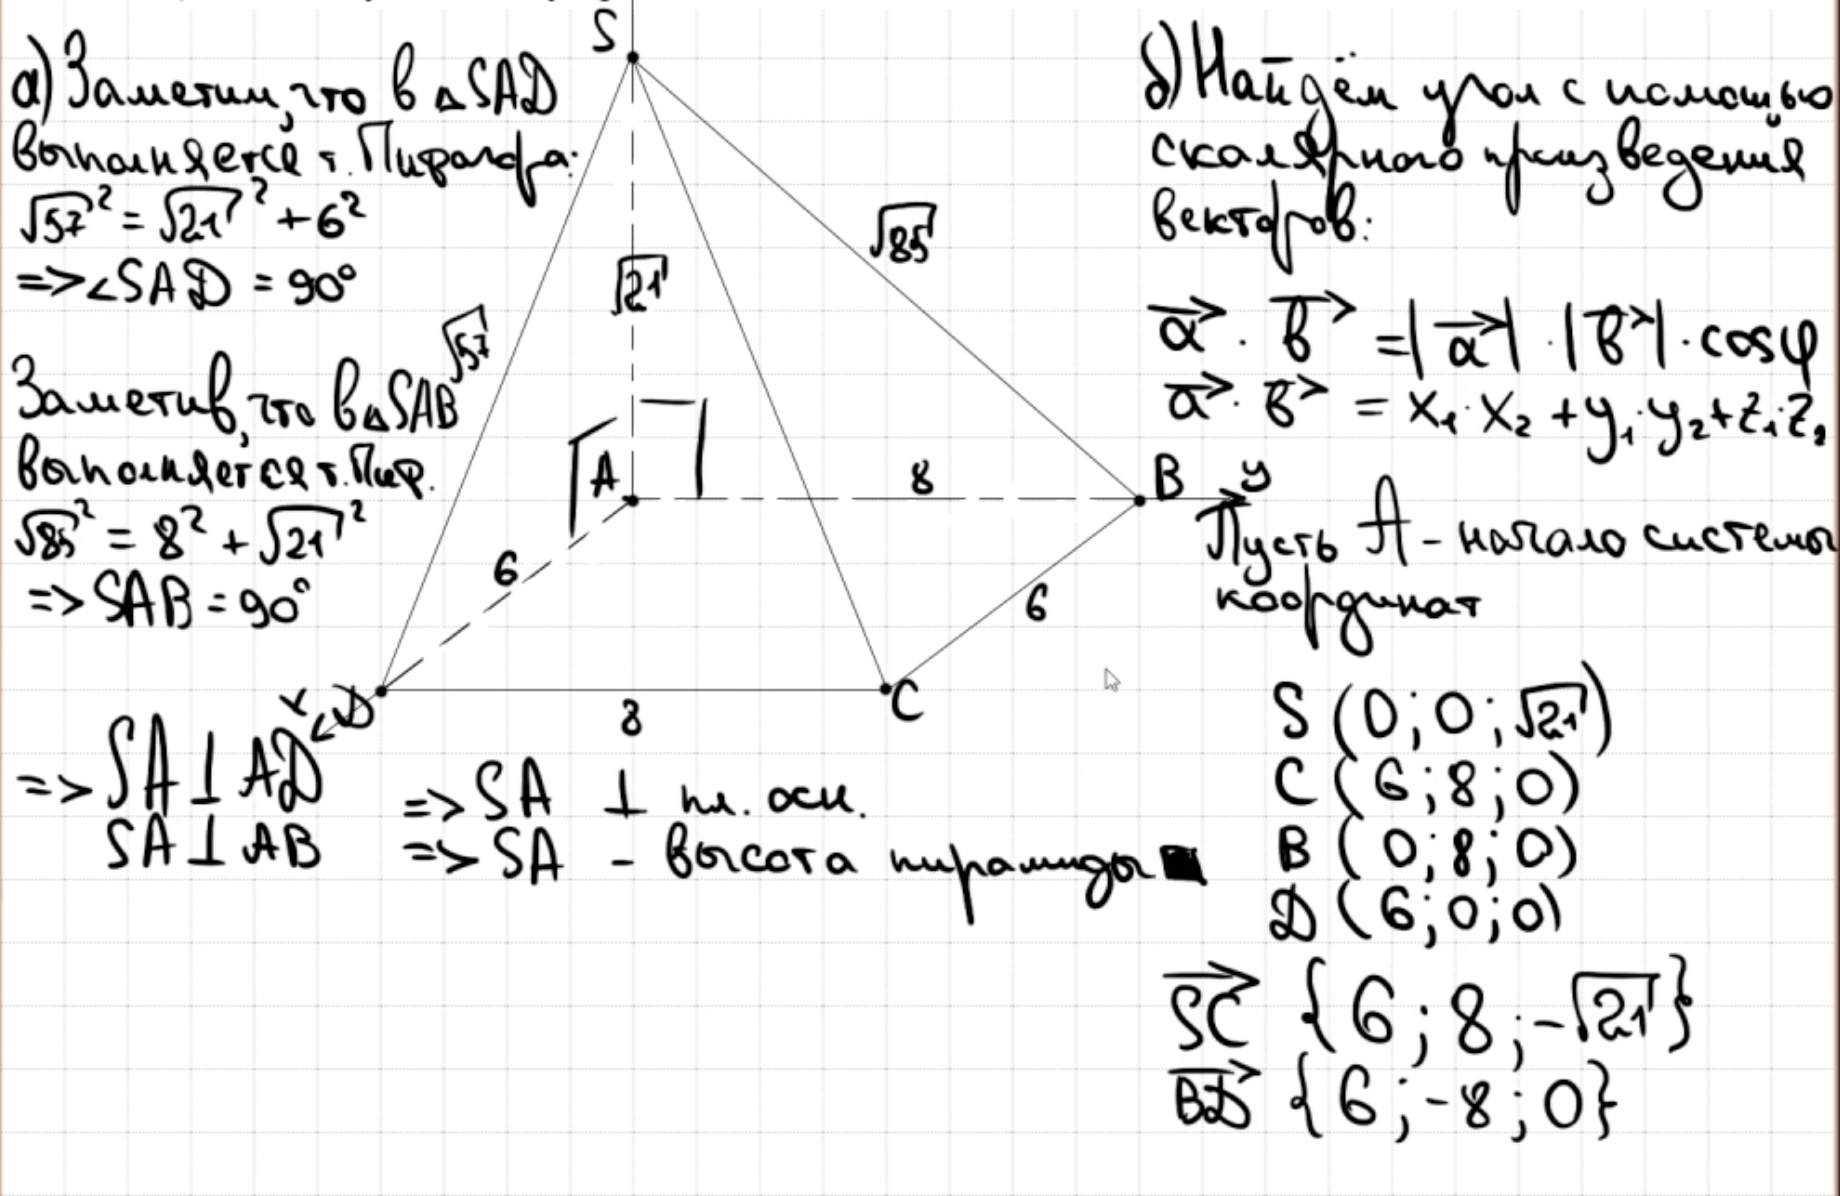 а) Заметим, что в △SAD
выполняется т. Пифагора:
√57² = √21² + 6²
=> ∠SAD = 90°
Заметив, что в △SAB
выполняется т. Пиф.
√85² = 8² + √21²
=> SAB = 90°
=> SA ⊥ AD
SA ⊥ AB
=> SA ⊥ пл. осн.
=> SA - высота пирамиды ■
S
√85
√21
√57
A
8
B
y
6
6
x
D
8
C
б) Найдём угол с помощью
скалярного произведения
векторов:
a⃗ · b⃗ = |a⃗| · |b⃗| · cosφ
a⃗ · b⃗ = x₁·x₂ + y₁·y₂ + z₁·z₂
Пусть A - начало системы
координат
S (0; 0; √21)
C (6; 8; 0)
B (0; 8; 0)
D (6; 0; 0)
SC⃗ {6; 8; -√21}
BD⃗ {6; -8; 0}